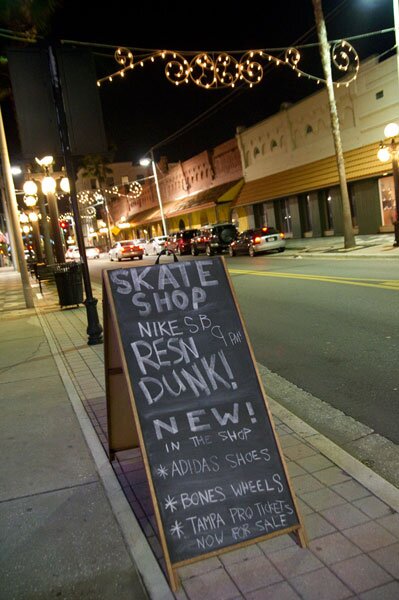 SKATE
SHOP
NIKE SB
RESN
DUNK!
NEW!
IN THE SHOP
*ADIDAS SHOES
*BONES WHEELS
*TAMPA PRO TICKETS
NOW FOR SALE